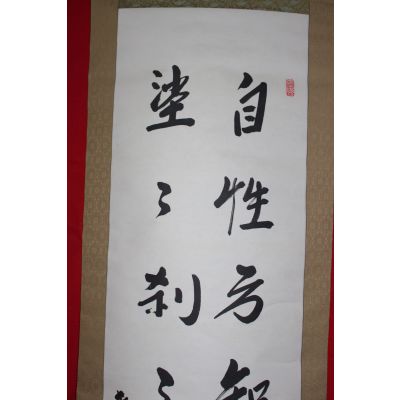 自性方
塵々刹々